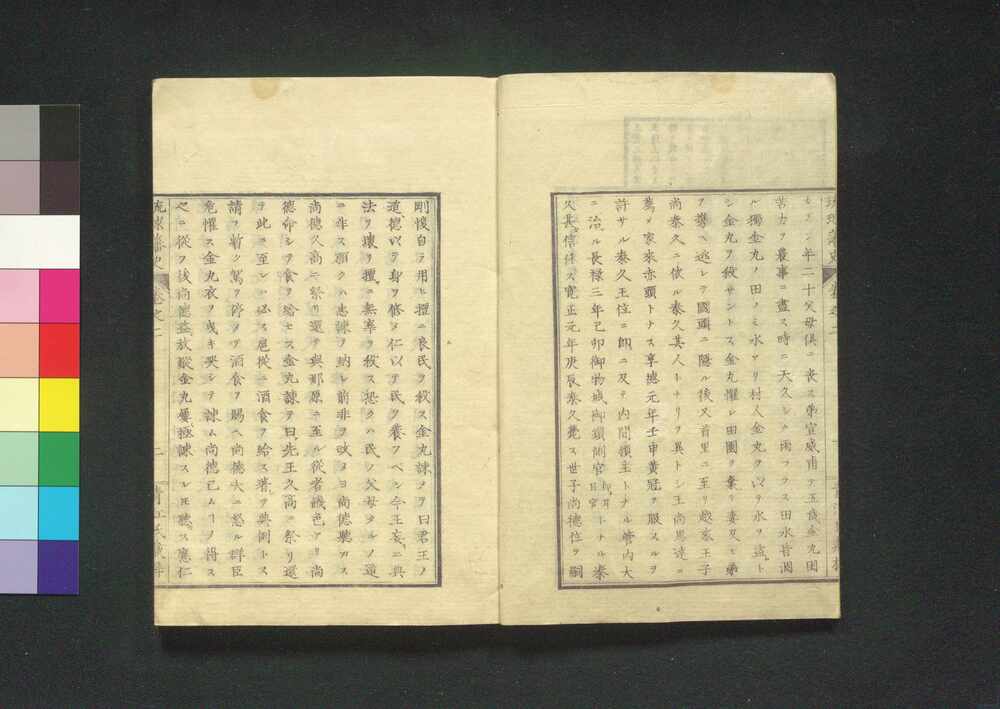 セシ年二十父母倶ニ喪ス弟宣威甫テ五歳金丸困
苦力ヲ農事ニ盡ス時ニ天久シク雨フラス田水皆涸
ル獨金丸ノ田ノミ水アリ村人金丸ヲ以テ水ヲ盗ト
シ金丸ヲ殺サントス金丸懼レ田園ヲ棄テ妻及ヒ弟
ヲ攜ヘ逃レテ國頭ニ隱ル後又首里ニ至リ越來王子
尚泰久ニ依ル泰久其人トナリヲ異トシ王尚思達ニ
薦メ家來赤頭トナス享徳元年壬申黃冠ヲ服スルヲ
許サル泰久王位ニ即ニ及テ内間領主トナル管内大
ニ治ル長禄三年己卯御物城御鎖側官トナル泰
久甚信任ス寛正元年庚辰泰久薨ス世子尚徳位ヲ嗣
剛愎自ラ用ヒ擅ニ良民ヲ殺ス金丸諫メテ曰君王ノ
道徳以テ身ヲ修メ仁以テ民ヲ養フヘシ今王妄ニ典
法ヲ壊リ擅ニ無辜ヲ殺ス恐クハ民ノ父母タルノ道
ニ非ス願クハ忠諫ヲ納レ前非ヲ改メヨ尚徳聽カス
尚徳久高ニ祭リ還テ與那原ニ至ル從者饑色アリ尚
徳命シテ食ヲ給セス金丸諫テ曰先王久高ニ祭リ還
テ此ニ至レハ必ス扈從ニ酒食ヲ給スヲ典例トス
請フ暫ク駕ヲ停メテ酒食ヲ賜ヘ尚徳大ニ怒ル群臣
危懼ス金丸衣ヲ曳キ哭シテ諫ム尚徳已ムヿヲ得ス
之ニ從フ後尚徳益放縱金丸屢極諫スレ𪜈聽ス應仁
琉球藩史 卷之二